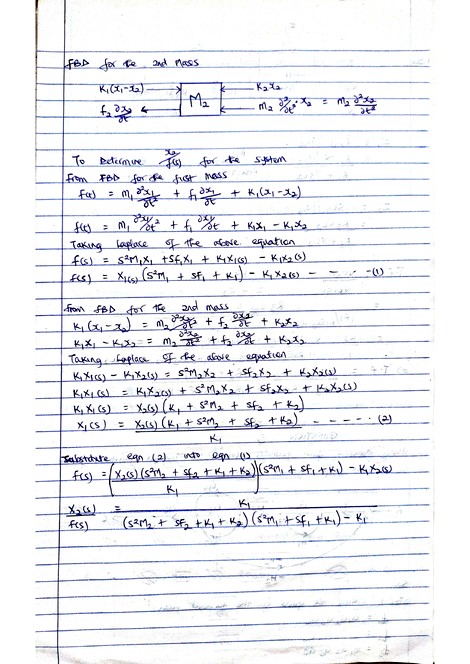 FBD for the 2nd Mass
K₁(x₁-x₂) → M₂ ← K₂x₂
f₂ ∂x₂/∂t ← M₂ ← m₂ ∂²/∂t² · x₂ = m₂ ∂²x₂/∂t²
To Determine x₂/f(s) for the system
from FBD for the first mass
f(t) = m₁ ∂²x₁/∂t² + f₁ ∂x₁/∂t + K₁(x₁-x₂)
f(t) = m₁ ∂²x₁/∂t² + f₁ ∂x₁/∂t + K₁x₁ - K₁x₂
Taking Laplace of the above equation
f(s) = S²M₁X₁ + Sf₁X₁ + K₁X₁(s) - K₁X₂(s)
f(s) = X₁(s) (S²M₁ + Sf₁ + K₁) - K₁X₂(s) - - - -(1)
from FBD for the 2nd mass
K₁(x₁-x₂) = m₂ ∂²x₂/∂t² + f₂ ∂x₂/∂t + K₂x₂
K₁x₁ - K₁x₂ = m₂ ∂²x₂/∂t² + f₂ ∂x₂/∂t + K₂x₂
Taking Laplace of the above equation
K₁X₁(s) - K₁X₂(s) = S²M₂X₂ + Sf₂X₂ + K₂X₂(s)
K₁X₁(s) = K₁X₂(s) + S²M₂X₂ + Sf₂X₂ + K₂X₂(s)
K₁X₁(s) = X₂(s) (K₁ + S²M₂ + Sf₂ + K₂)
X₁(s) = X₂(s) (K₁ + S²M₂ + Sf₂ + K₂) / K₁ - - - - - - (2)
Substitute eqn (2) into eqn (1)
f(s) = (X₂(s) (S²M₂ + Sf₂ + K₁ + K₂) / K₁) (S²M₁ + Sf₁ + K₁) - K₁X₂(s)
X₂(s) / f(s) = K₁ / (S²M₂ + Sf₂ + K₁ + K₂) (S²M₁ + Sf₁ + K₁) - K₁